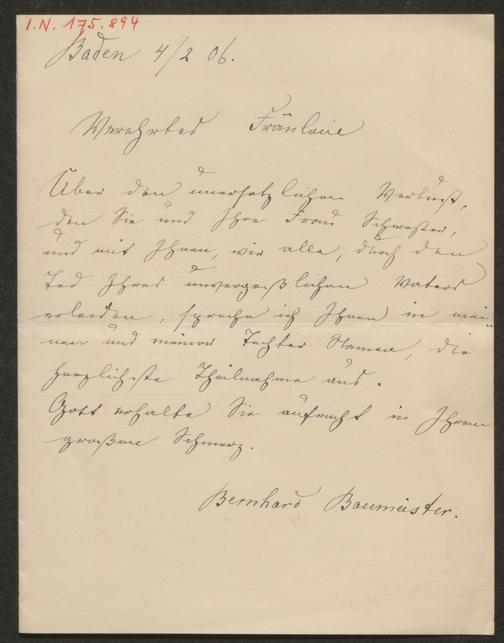 I.N. 175.894
Baden 4/2 06.
Verehrtes Fräulein
Über den unersetzlichen Verlust,
den Sie und Ihre Frau Schwester,
und mit Ihnen, wir alle, durch den
Tod Ihres unvergeßlichen Vaters
erleiden, spreche ich Ihnen in mei-
nen und meiner Tochter Namen, die
herzlichste Theilnahme aus.
Gott erhalte Sie aufrecht in Ihrem
großen Schmerz.
Bernhard Baumeister.